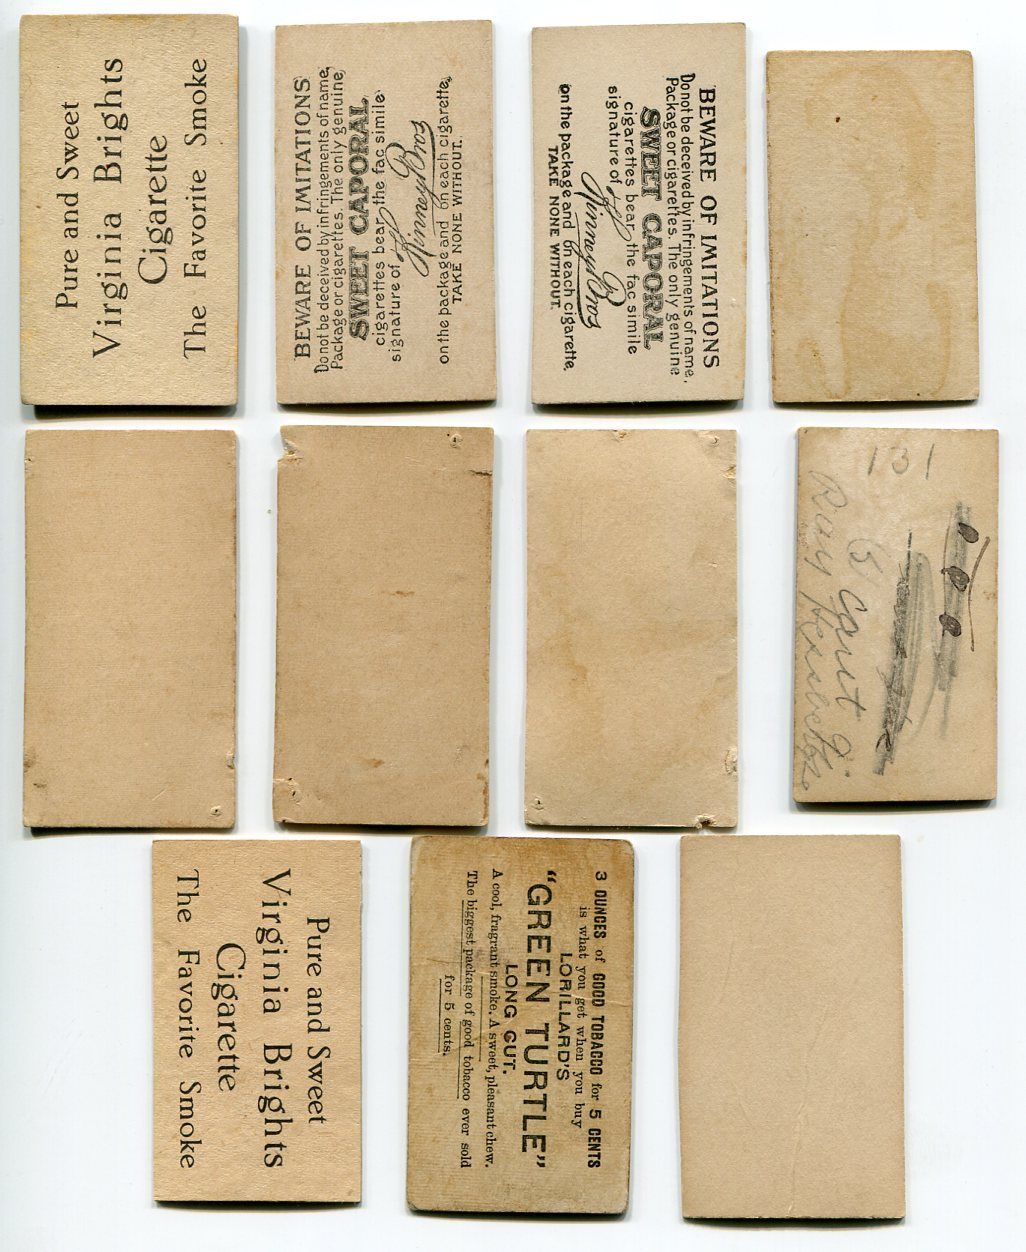 Pure and Sweet
Virginia Brights
Cigarette
The Favorite Smoke
BEWARE OF IMITATIONS
Do not be deceived by infringements of name,
Package or cigarettes. The only genuine
SWEET CAPORAL
cigarettes bear the fac simile
signature of Kinney Bros
on the package and on each cigarette,
TAKE NONE WITHOUT.
BEWARE OF IMITATIONS
Do not be deceived by infringements of name,
Package or cigarettes. The only genuine
SWEET CAPORAL
cigarettes bear the fac simile
signature of Kinney Bros
on the package and on each cigarette,
TAKE NONE WITHOUT.
131
Ray
Pure and Sweet
Virginia Brights
Cigarette
The Favorite Smoke
3 OUNCES of GOOD TOBACCO for 5 CENTS
is what you get when you buy
LORILLARD'S
"GREEN TURTLE"
LONG CUT.
A cool, fragrant smoke. A sweet, pleasant chew.
The biggest package of good tobacco ever sold
for 5 cents.